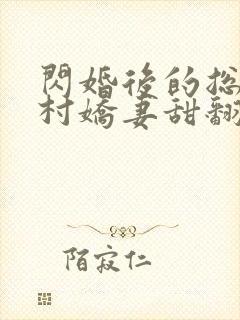 閃婚後的总
村嬌妻甜翻
陌寂仁